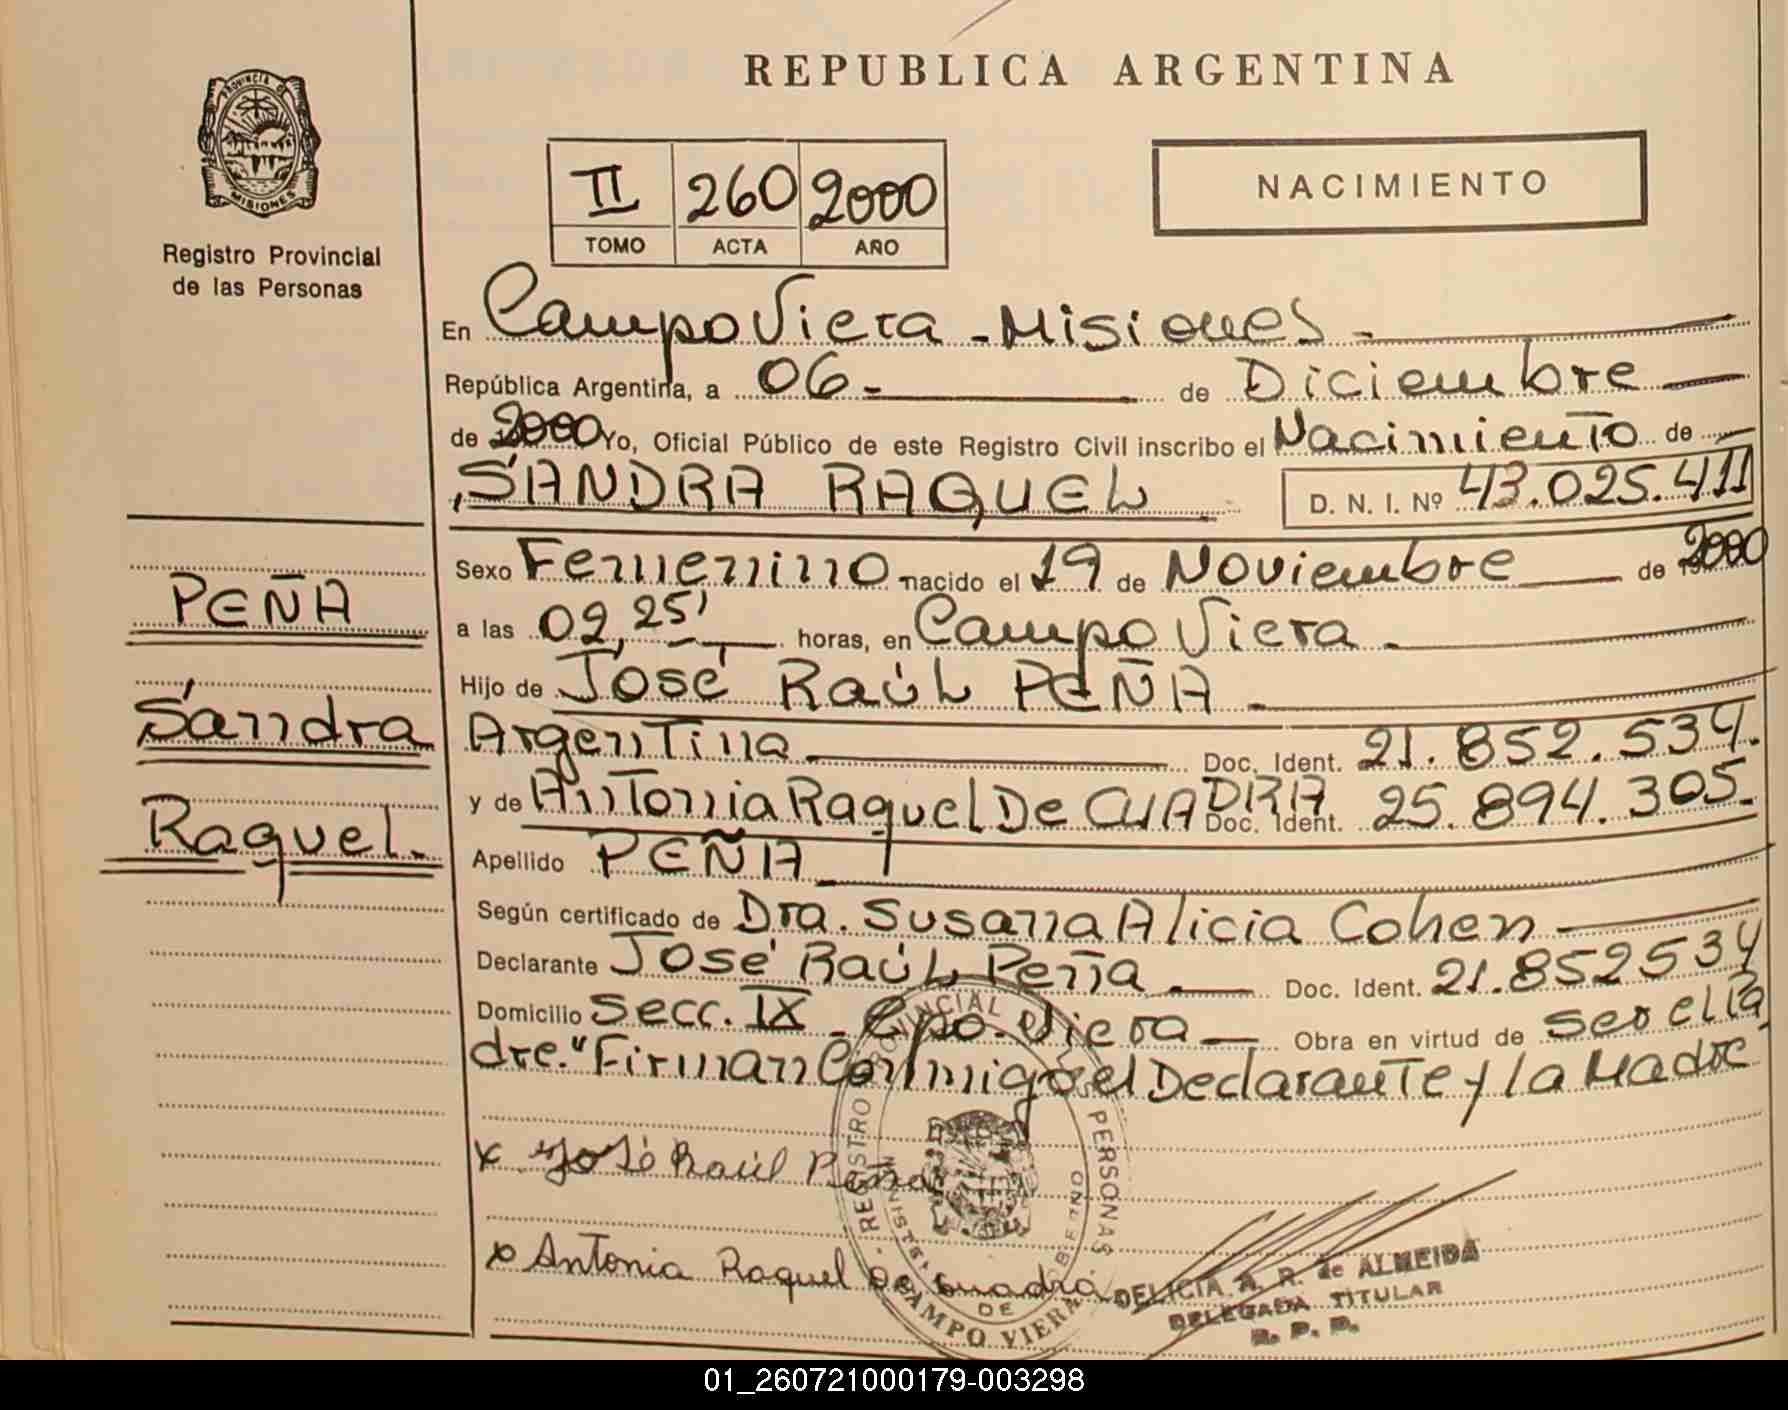 REPUBLICA ARGENTINA
PROVINCIA DE
MISIONES
Registro Provincial
de las Personas
II 260 2000
TOMO ACTA AÑO
NACIMIENTO
En Campo Viera - Misiones -
República Argentina, a 06 - de Diciembre
de 2000 Yo, Oficial Público de este Registro Civil inscribo el Nacimiento de
SANDRA RAQUEL D. N. I. Nº 43.025.411
Sexo Femenino nacido el 19 de Noviembre de 2000
a las 02,25' horas, en Campo Viera -
Hijo de José Raúl PEÑA -
Argentina Doc. Ident. 21.852.534.
y de Antonia Raquel De CUADRA Doc. Ident. 25.894.305.
Apellido PEÑA
Según certificado de Dra. Susana Alicia Cohen
Declarante José Raúl Peña - Doc. Ident. 21.852534
Domicilio Secc. IX - Cpo. Viera Obra en virtud de ser el Pa
dre." Firman Conmigo el Declarante y la Madre
PEÑA
Sandra
Raquel.
x José Raúl Peña
x Antonia Raquel De Cuadra
REGISTRO PROVINCIAL DE LAS PERSONAS
CAMPO VIERA
DELICIA A. R. de ALMEIDA
DELEGADA TITULAR
R. P. P.
01_260721000179-003298